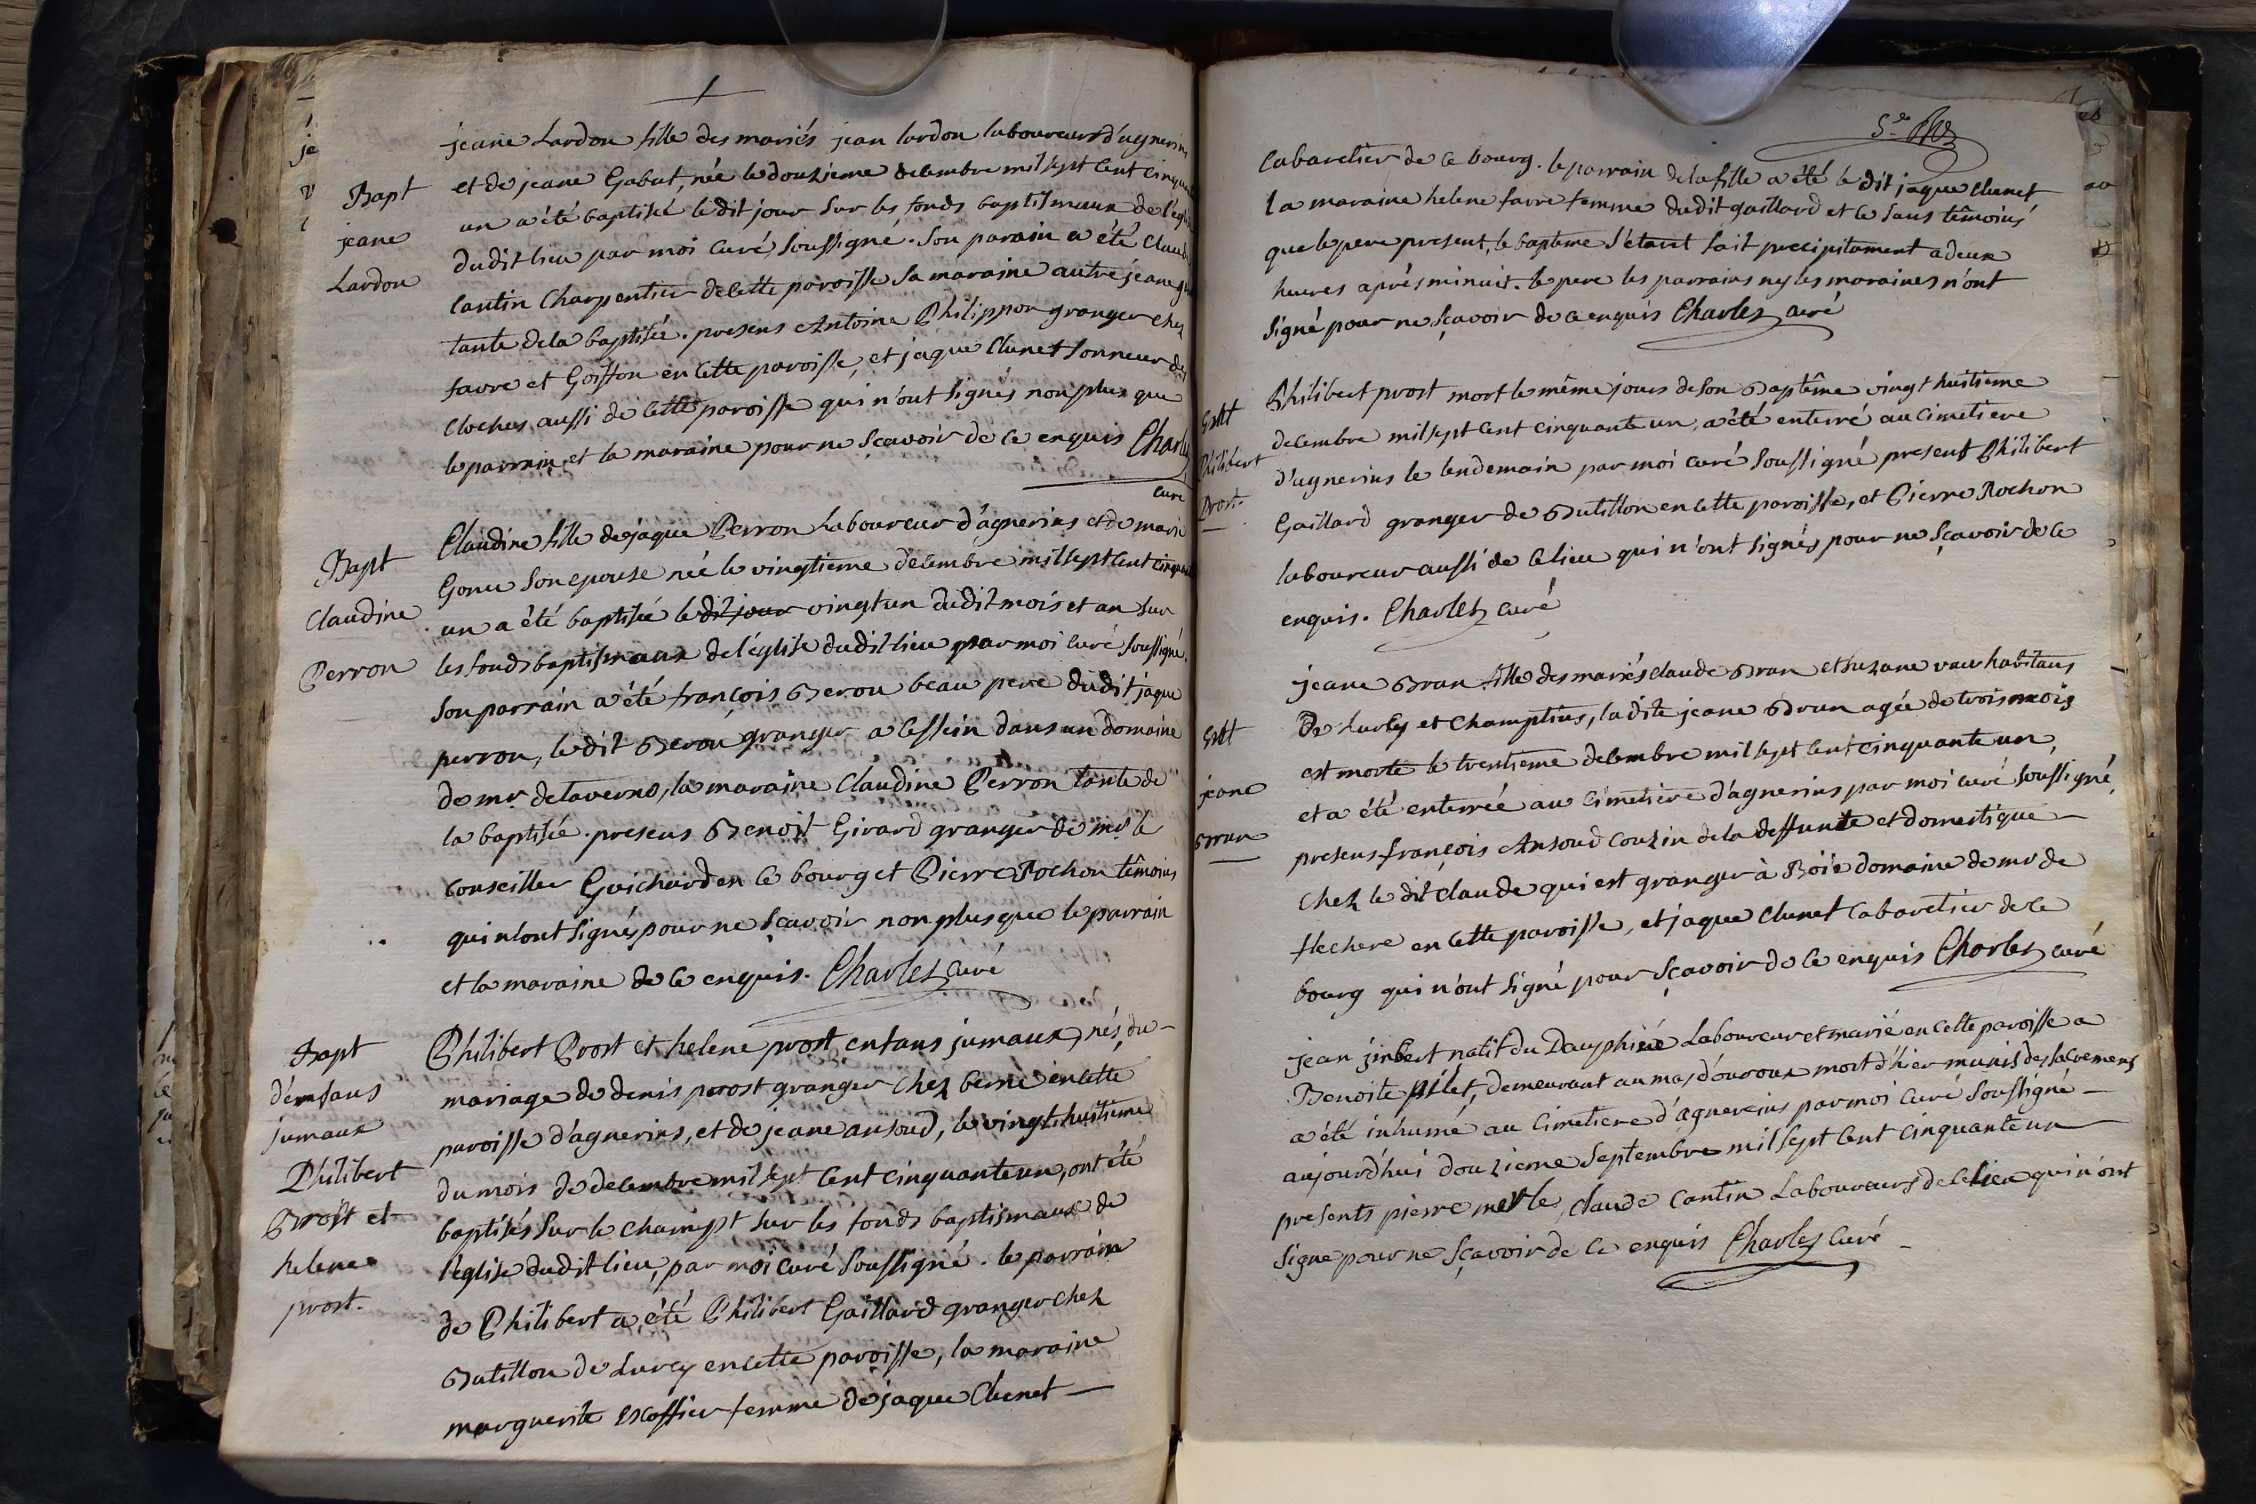 Bapt
jeane
Lardon
jeane Lardon fille des mariés jean lardon laboureurs d'agnerins
et de jeane Gabut, née le douzieme decembre mil sept cent cinquante
un a été baptisée le dit jour sur les fonds baptismaux de l'eglise
dudit lieu par moi curé soussigné. Son parain a été Claude
Cantin Charpentier de cette paroisse sa maraine autre jeane
tante de la baptisée. presens Antoine Philippon granger chez
favre et Goiffon en cette paroisse, et jaque Clunet sonneur des
cloches aussi de cette paroisse qui n'ont signés non plus que
le parrain et la maraine pour ne sçavoir de ce enquis Charles
curé
Bapt
Claudine
Perron
Claudine fille de jaque Perron Laboureur d'agnerins et de marie
Gonu son epouse née le vingtieme decembre mil sept cent cinquante
un a été baptisée le dit jour vingt un dudit mois et an sur
les fonds baptismaux de l'église dudit lieu par moi curé soussigné.
Son parrain a été françois Berou beau pere dudit jaque
perron, le dit Berou granger a Cessein dans un domaine
de mr detaverno, la maraine Claudine Perron tante de
la baptisée. presens Benoit Girard granger de mr le
conseiller Guichard en ce bourg et Pierre Rochon têmoins
qui n'ont signés pour ne sçavoir non plus que le parrain
et la maraine de ce enquis. Charles curé
Bapt
d'enfans
jumaux
Philibert
Prost et
helene
prost.
Philibert Prost et helene prost enfans jumaux, nés du
mariage de denis prost granger chez berne en cette
paroisse d'agnerins, et de jeane ansoud, le vingt huitieme
du mois de decembre mil sept cent cinquante un, ont été
baptisés sur le champt sur les fonds baptismaux de
l'église dudit lieu, par moi curé soussigné. le parrain
de Philibert a été Philibert Gaillard granger chez
Butillon de Lurcy en cette paroisse, la maraine
marguerite escoffier femme de jaque Clunet
Cabaretier de ce bourg. le parrain de la fille a été le dit jaque Clunet
la maraine helene favre femme dudit gaillard et ce sans têmoins
que le pere present, le baptême s'étant fait precipitament a deux
heures après minuit. le pere les parrains ny les maraines n'ont
signé pour ne sçavoir de ce enquis Charles curé
Entt
Philibert
Prost.
Philibert prost mort le même jours de son Baptême vingt huitieme
decembre mil sept cent cinquante un, a été enterré au cimetiere
d'agnerins le lendemain par moi curé soussigné present Philibert
Gaillard granger de Butillon en cette paroisse, et Pierre Rochon
laboureur aussi de ce lieu qui n'ont signés pour ne sçavoir de ce
enquis. Charles curé
Entt
jeane
Brun
jeane Brun fille des mariés claude Brun et suzane vaur habitans
De Lurcy et Champtins, la dite jeane Brun agée de trois mois
est morte le trentieme decembre mil sept cent cinquante un,
et a été enterrée au cimetiere d'agnerins par moi curé soussigné
presens françois Ansoud couzin de la deffunte et domestique
chez le dit claude qui est granger à Boie domaine de mr de
flechere en cette paroisse, et jaque Clunet cabaretier de ce
bourg qui n'ont signé pour sçavoir de ce enquis Charles curé
jean jinbert natif du Dauphiné Laboureur et marié en cette paroisse a
Benoite pilet, demeurant au mas d'ouroux mort d'hier munis des sacremens
a été inhumé au cimetiere d'agnereins par moi curé soussigné
aujourd'hui douzieme Septembre mil sept cent cinquante un
presents pierre merle, claude cantin Laboureurs de ce lieu qui n'ont
signe pour ne sçavoir de ce enquis Charles Curé